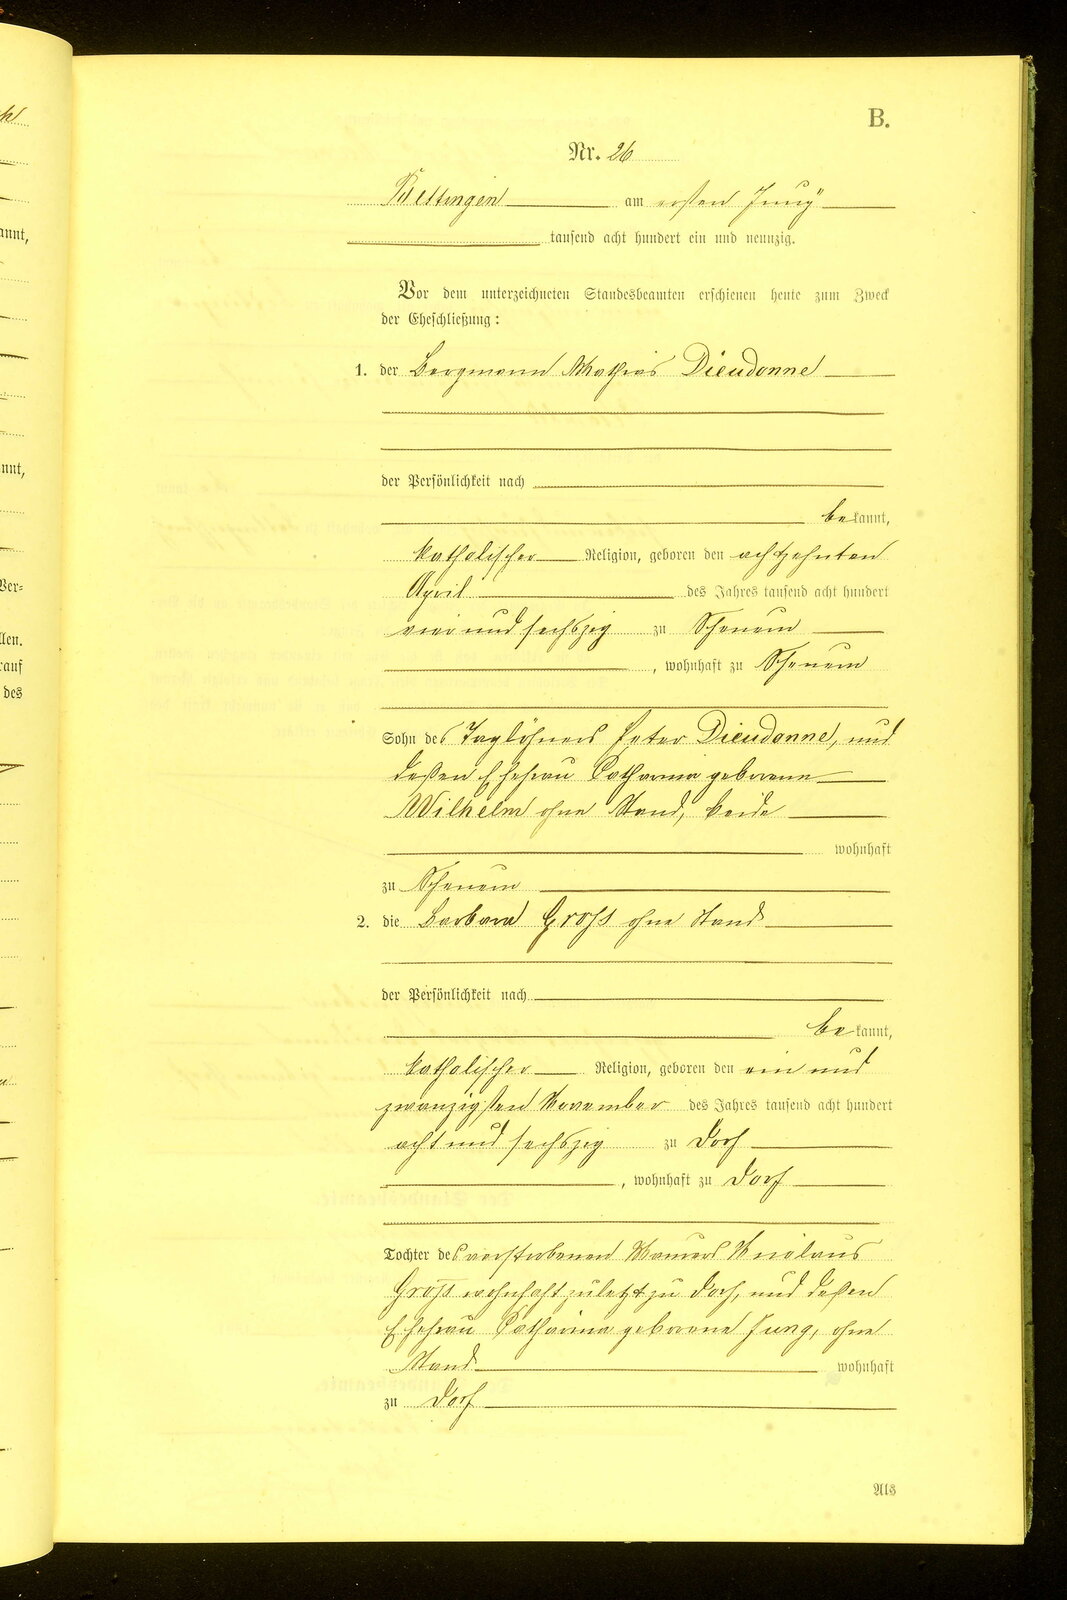 B.
Nr. 26
Bettingen am ersten Juny
tausend acht hundert ein und neunzig.
Vor dem unterzeichneten Standesbeamten erschienen heute zum Zweck
der Eheschließung:
1. der Bergmann Mathias Dieudonne
der Persönlichkeit nach
bekannt,
katholischer Religion, geboren den achtzehnten
April des Jahres tausend acht hundert
vier und sechszig zu
, wohnhaft zu
Sohn des Taglöhners Peter Dieudonne, und
deßen Ehefrau Catharina geborene
Wilhelm ohne Stand, beide
wohnhaft
zu
2. die Barbara Groß ohne Stand
der Persönlichkeit nach
bekannt,
katholischer Religion, geboren den ein und
zwanzigsten November des Jahres tausend acht hundert
acht und sechszig zu Dorf
, wohnhaft zu Dorf
Tochter des verstorbenen Nicolaus
Groß wohnhaft zuletzt zu Dorf, und deßen
Ehefrau Catharina geborene Jung, ohne
Stand wohnhaft
zu Dorf
Als
annt,
nnt,
Ver-
llen.
rauf
des